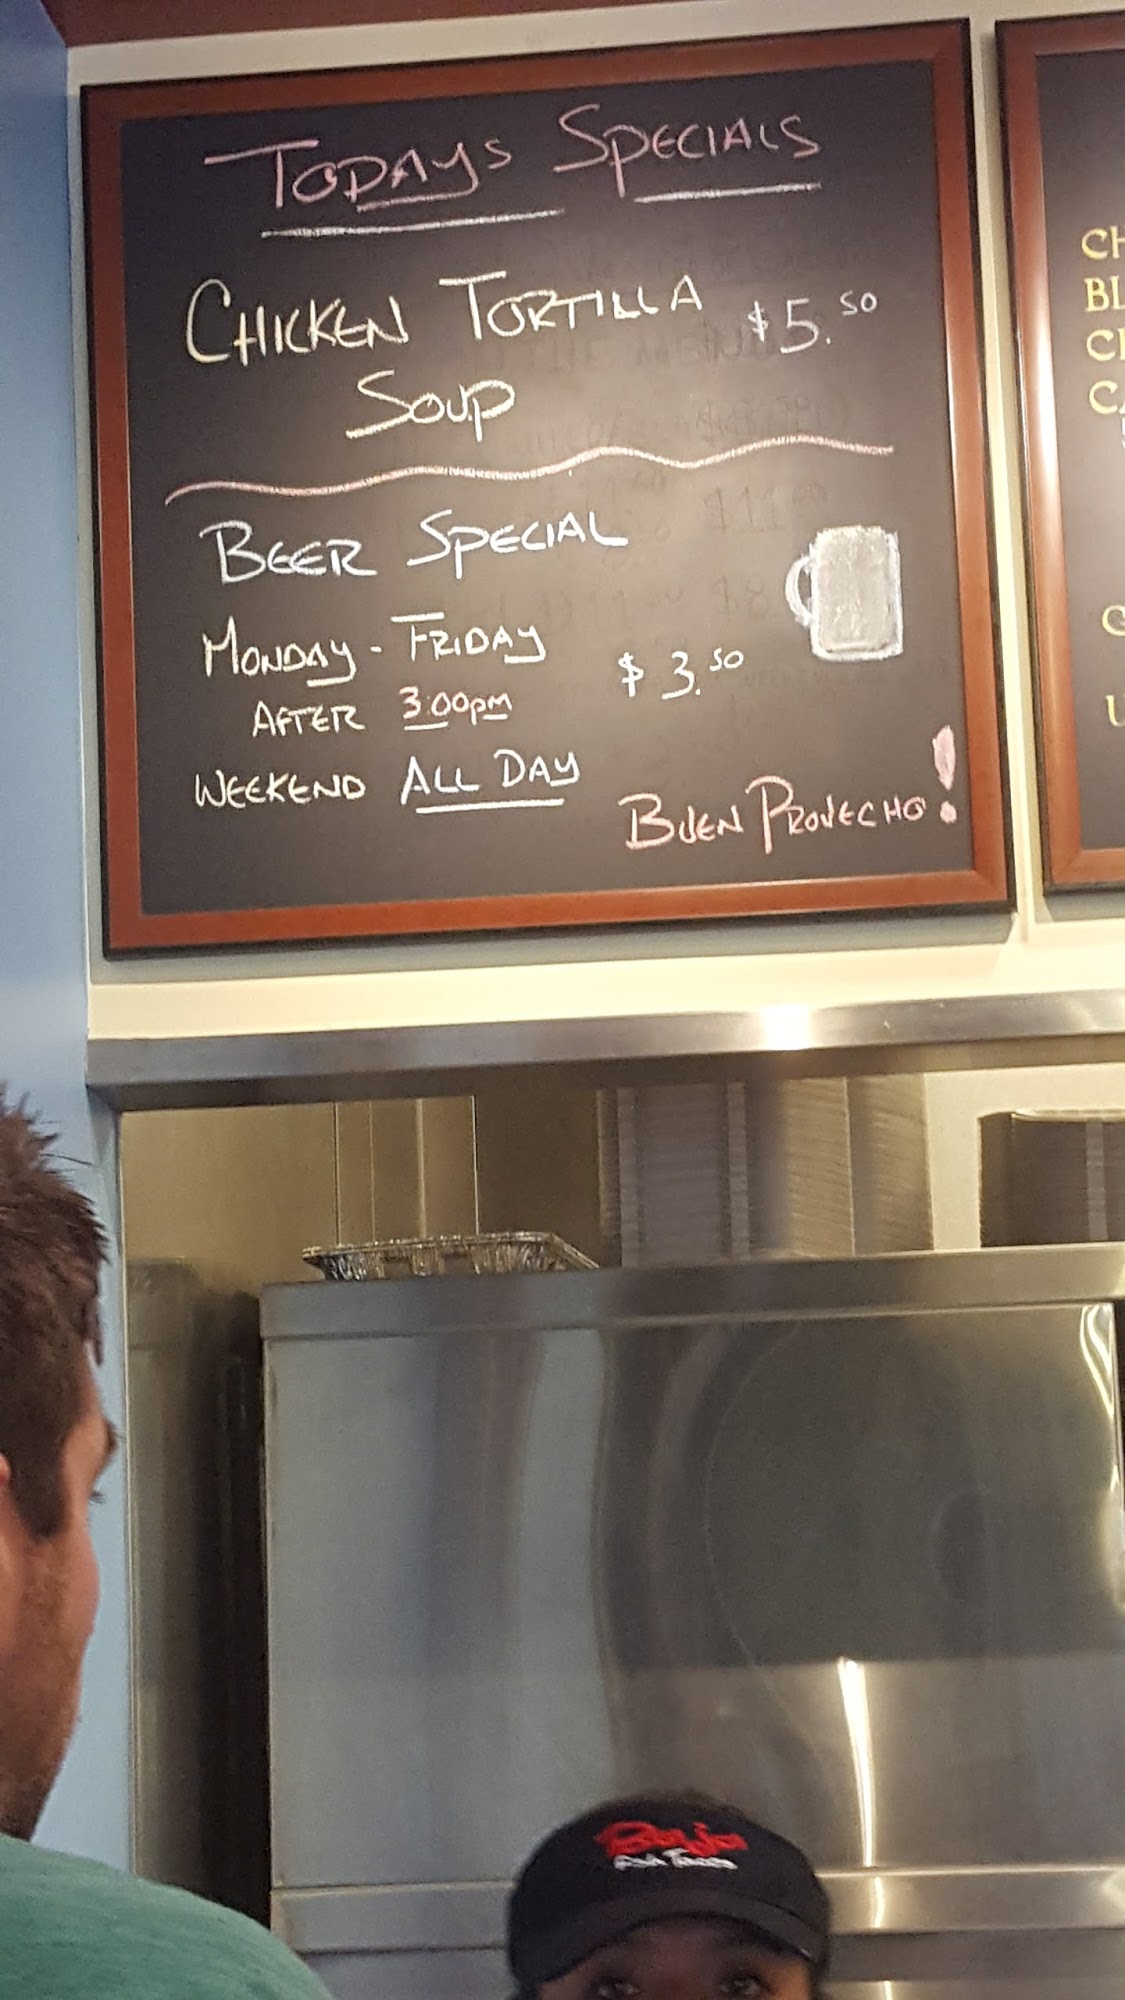 TODAYS SPECIALS
CHICKEN TORTILLA $5.50
SOUP
BEER SPECIAL
MONDAY - FRIDAY
$3.50
AFTER 3:00pm
WEEKEND ALL DAY
BUEN PROVECHO!
CH
BL
CA
Baja
Fish Tacos